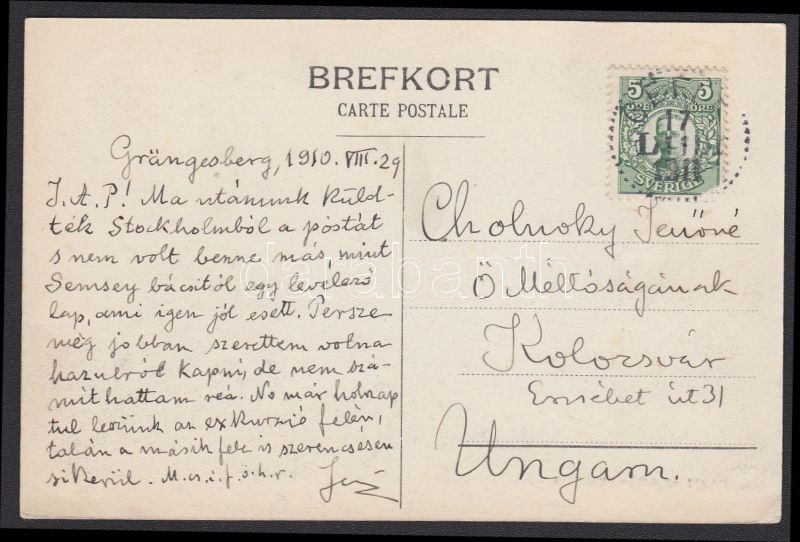 BREFKORT
CARTE POSTALE
5 5
ÖRE ÖRE
SVERIGE
17
Grängesberg, 1910. VIII. 29
J. A. P.! Ma utánunk küld-
ték Stockholmból a postát
s nem volt benne más, mint
Semsey bácsitól egy levelező
lap, ami igen jól esett. Persze
még jobban szerettem volna
hazulról kapni, de nem szá-
míthattam reá. No már holnap
túl leszünk az exkurzió felén,
talán a másik fele is szerencsésen
sikerül. M. cs. i. f. ö. h. v. Jenő
Cholnoky Jenőné
Ő Méltóságának
Kolozsvár
Erzsébet út 31
Ungarn.
darabanth